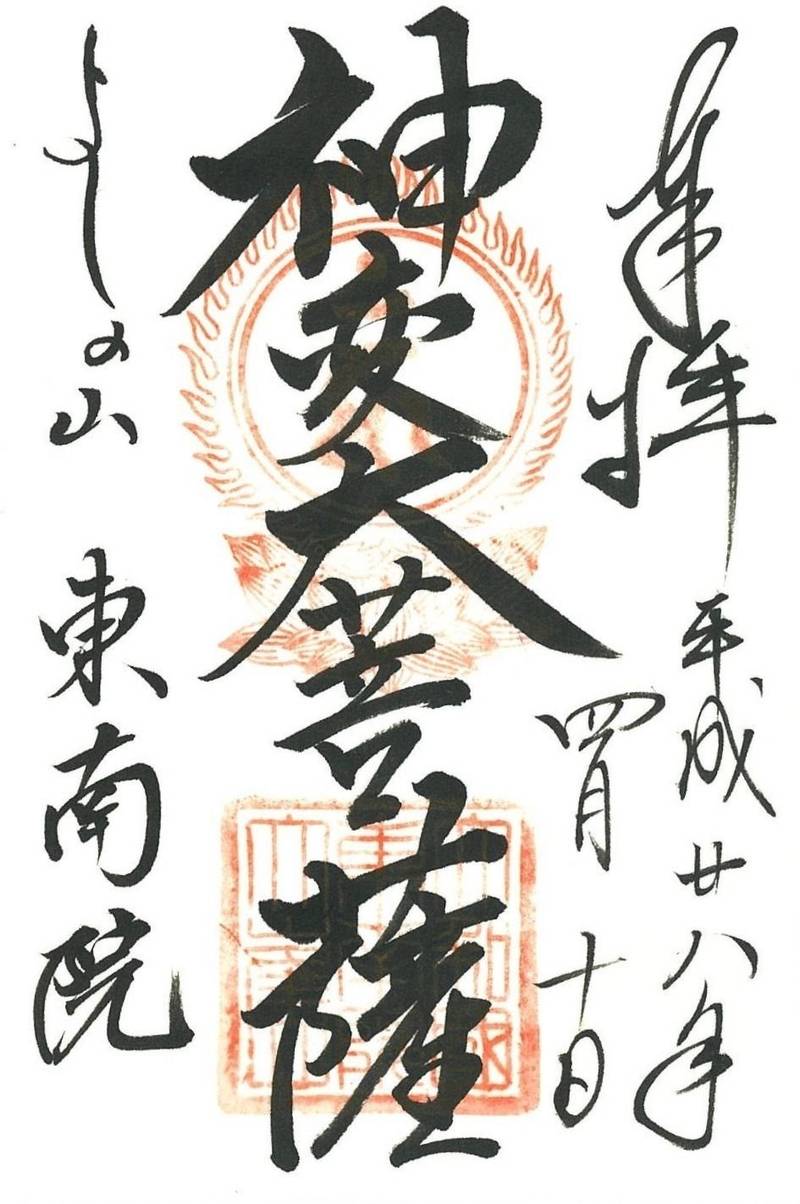 奉拝
平成廿八年
四月十日
神変大菩薩
よしの山
東南院